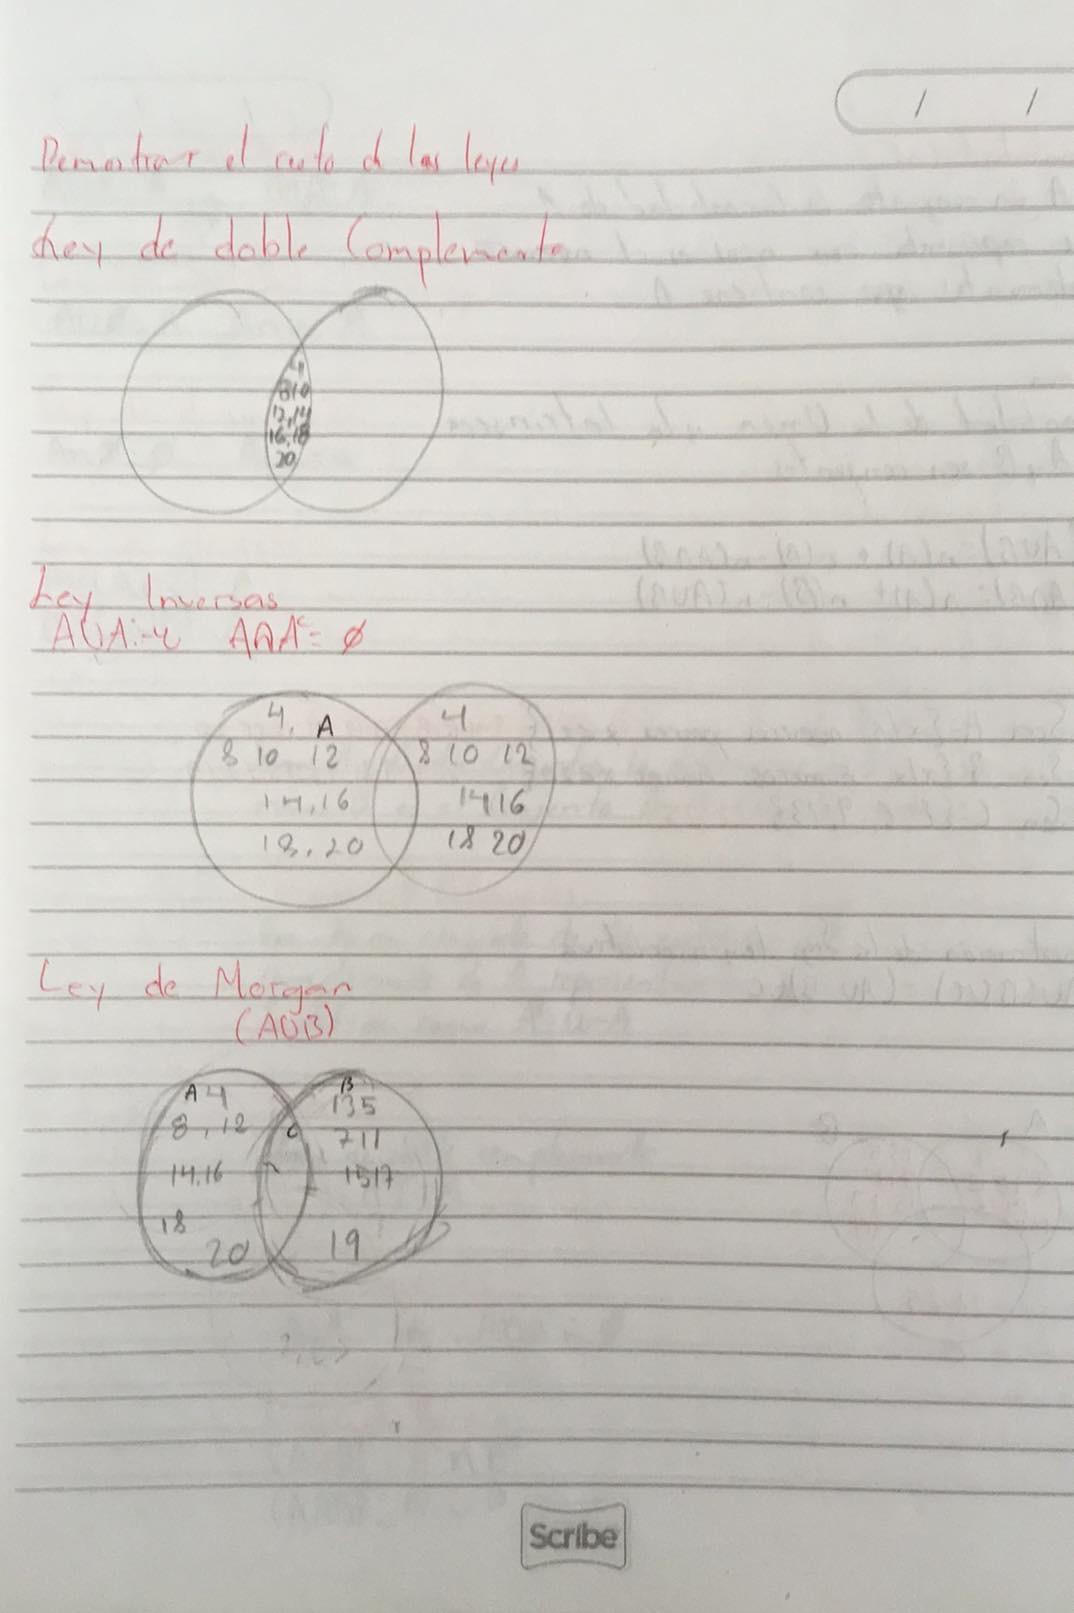 Demostrar el resto d las leyes
Ley de doble Complemento
4
8 10
12, 14
16, 18
20
Ley Inversas
A∪A = u A∩Aᶜ = ∅
4, A
8 10 12
14, 16
18, 20
4
8 10 12
14 16
18 20
Ley de Morgan
(A∪B)
A 4
8, 12
14, 16
18
20
C
B
1 3 5
7 11
15 17
19
Scribe